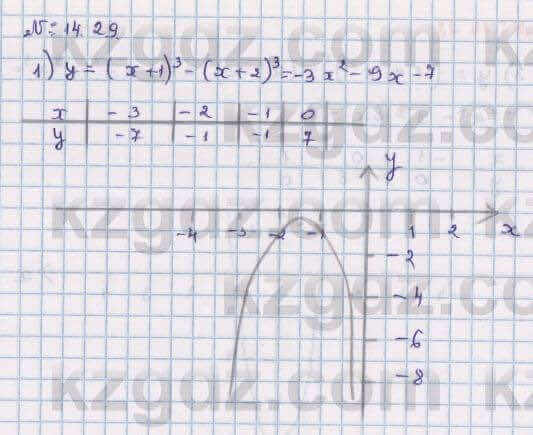 № 14.29
1) y = (x+1)³ - (x+2)³ = -3x² - 9x - 7
x | -3 | -2 | -1 | 0
y | -7 | -1 | -1 | 7
y
-4 -3 -2 -1 1 2 x
-2
-4
-6
-8
kzgaz.com
kzgaz.com
kzgaz.com